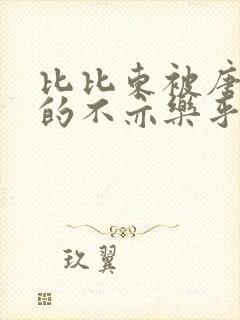 比比东被唐
的不亦乐乎
玖翼